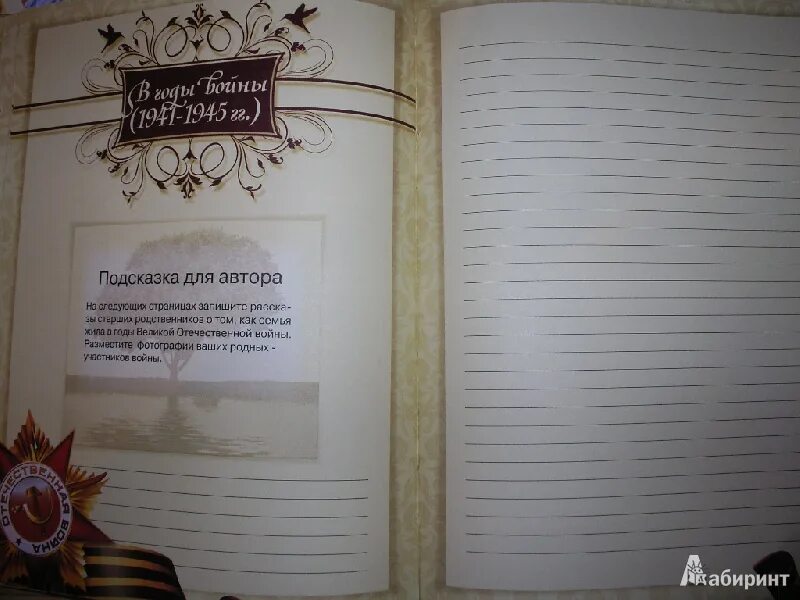 В годы войны
(1941-1945 гг.)
Подсказка для автора
На следующих страницах запишите расска-
зы старших родственников о том, как семья
жила в годы Великой Отечественной войны.
Разместите фотографии ваших родных -
участников войны.
ОТЕЧЕСТВЕННАЯ ВОЙНА
Лабиринт